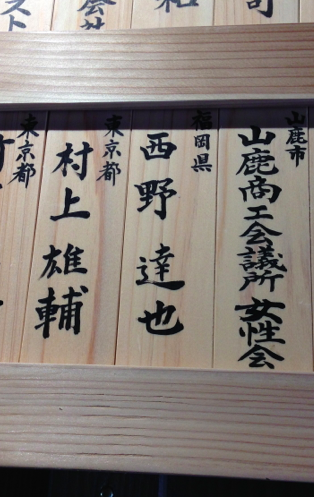 山鹿市
山鹿商工会議所 女性会
福岡県
西野 達也
東京都
村上 雄輔
東京都